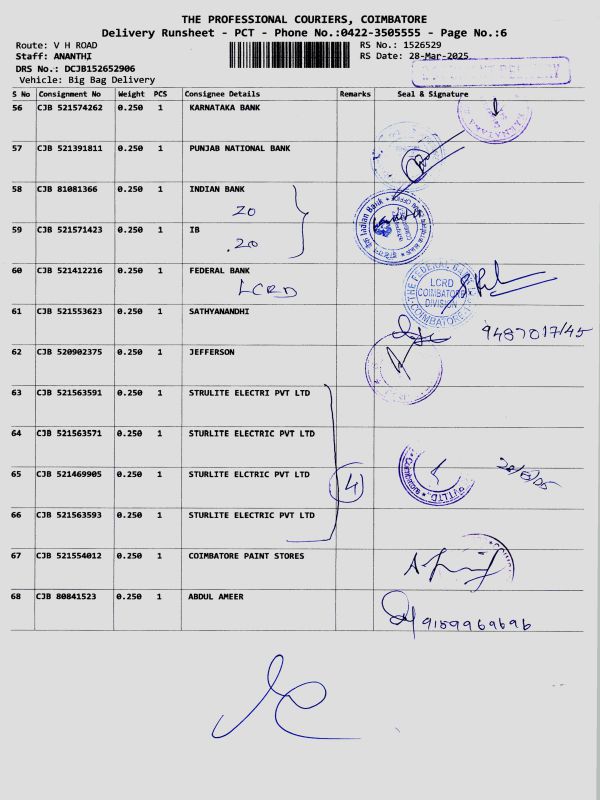 THE PROFESSIONAL COURIERS, COIMBATORE
Delivery Runsheet - PCT - Phone No.:0422-3505555 - Page No.:6
Route: V H ROAD
RS No.: 1526529
Staff: ANANTHI
RS Date: 28-Mar-2025
DRS No.: DCJB152652906
Vehicle: Big Bag Delivery
S No Consignment No Weight PCS Consignee Details Remarks Seal & Signature
56 CJB 521574262 0.250 1 KARNATAKA BANK
57 CJB 521391811 0.250 1 PUNJAB NATIONAL BANK
58 CJB 81081366 0.250 1 INDIAN BANK
ZO
59 CJB 521571423 0.250 1 IB
.20
Indian Bank
60 CJB 521412216 0.250 1 FEDERAL BANK
LCRD
THE FEDERAL BANK
LCRD
COIMBATORE
DIVISION
COIMBATORE
61 CJB 521553623 0.250 1 SATHYANANDHI
9487017145
62 CJB 520902375 0.250 1 JEFFERSON
63 CJB 521563591 0.250 1 STRULITE ELECTRI PVT LTD
64 CJB 521563571 0.250 1 STURLITE ELECTRIC PVT LTD
65 CJB 521469905 0.250 1 STURLITE ELCTRIC PVT LTD
4
66 CJB 521563593 0.250 1 STURLITE ELECTRIC PVT LTD
67 CJB 521554012 0.250 1 COIMBATORE PAINT STORES
68 CJB 80841523 0.250 1 ABDUL AMEER
9159969696